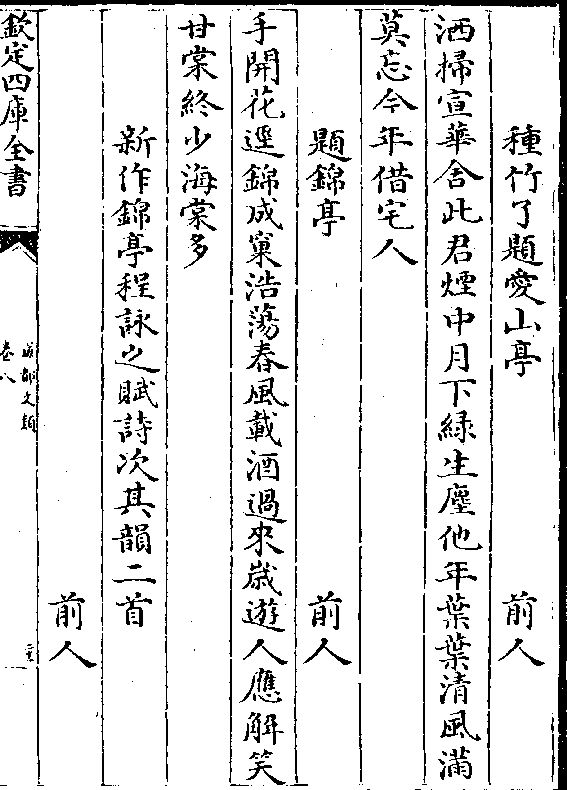 種竹了題愛山亭　前人
洒掃宣華舍此君煙中月下緑生塵他年葉葉清風滿
莫忘今年借宅人
題錦亭　前人
手開花逕錦成窠浩蕩春風載酒過來嵗遊人應解笑
甘棠終少海棠多
新作錦亭程詠之賦詩次其韻二首
前人
欽定四庫全書
成都文類
卷八